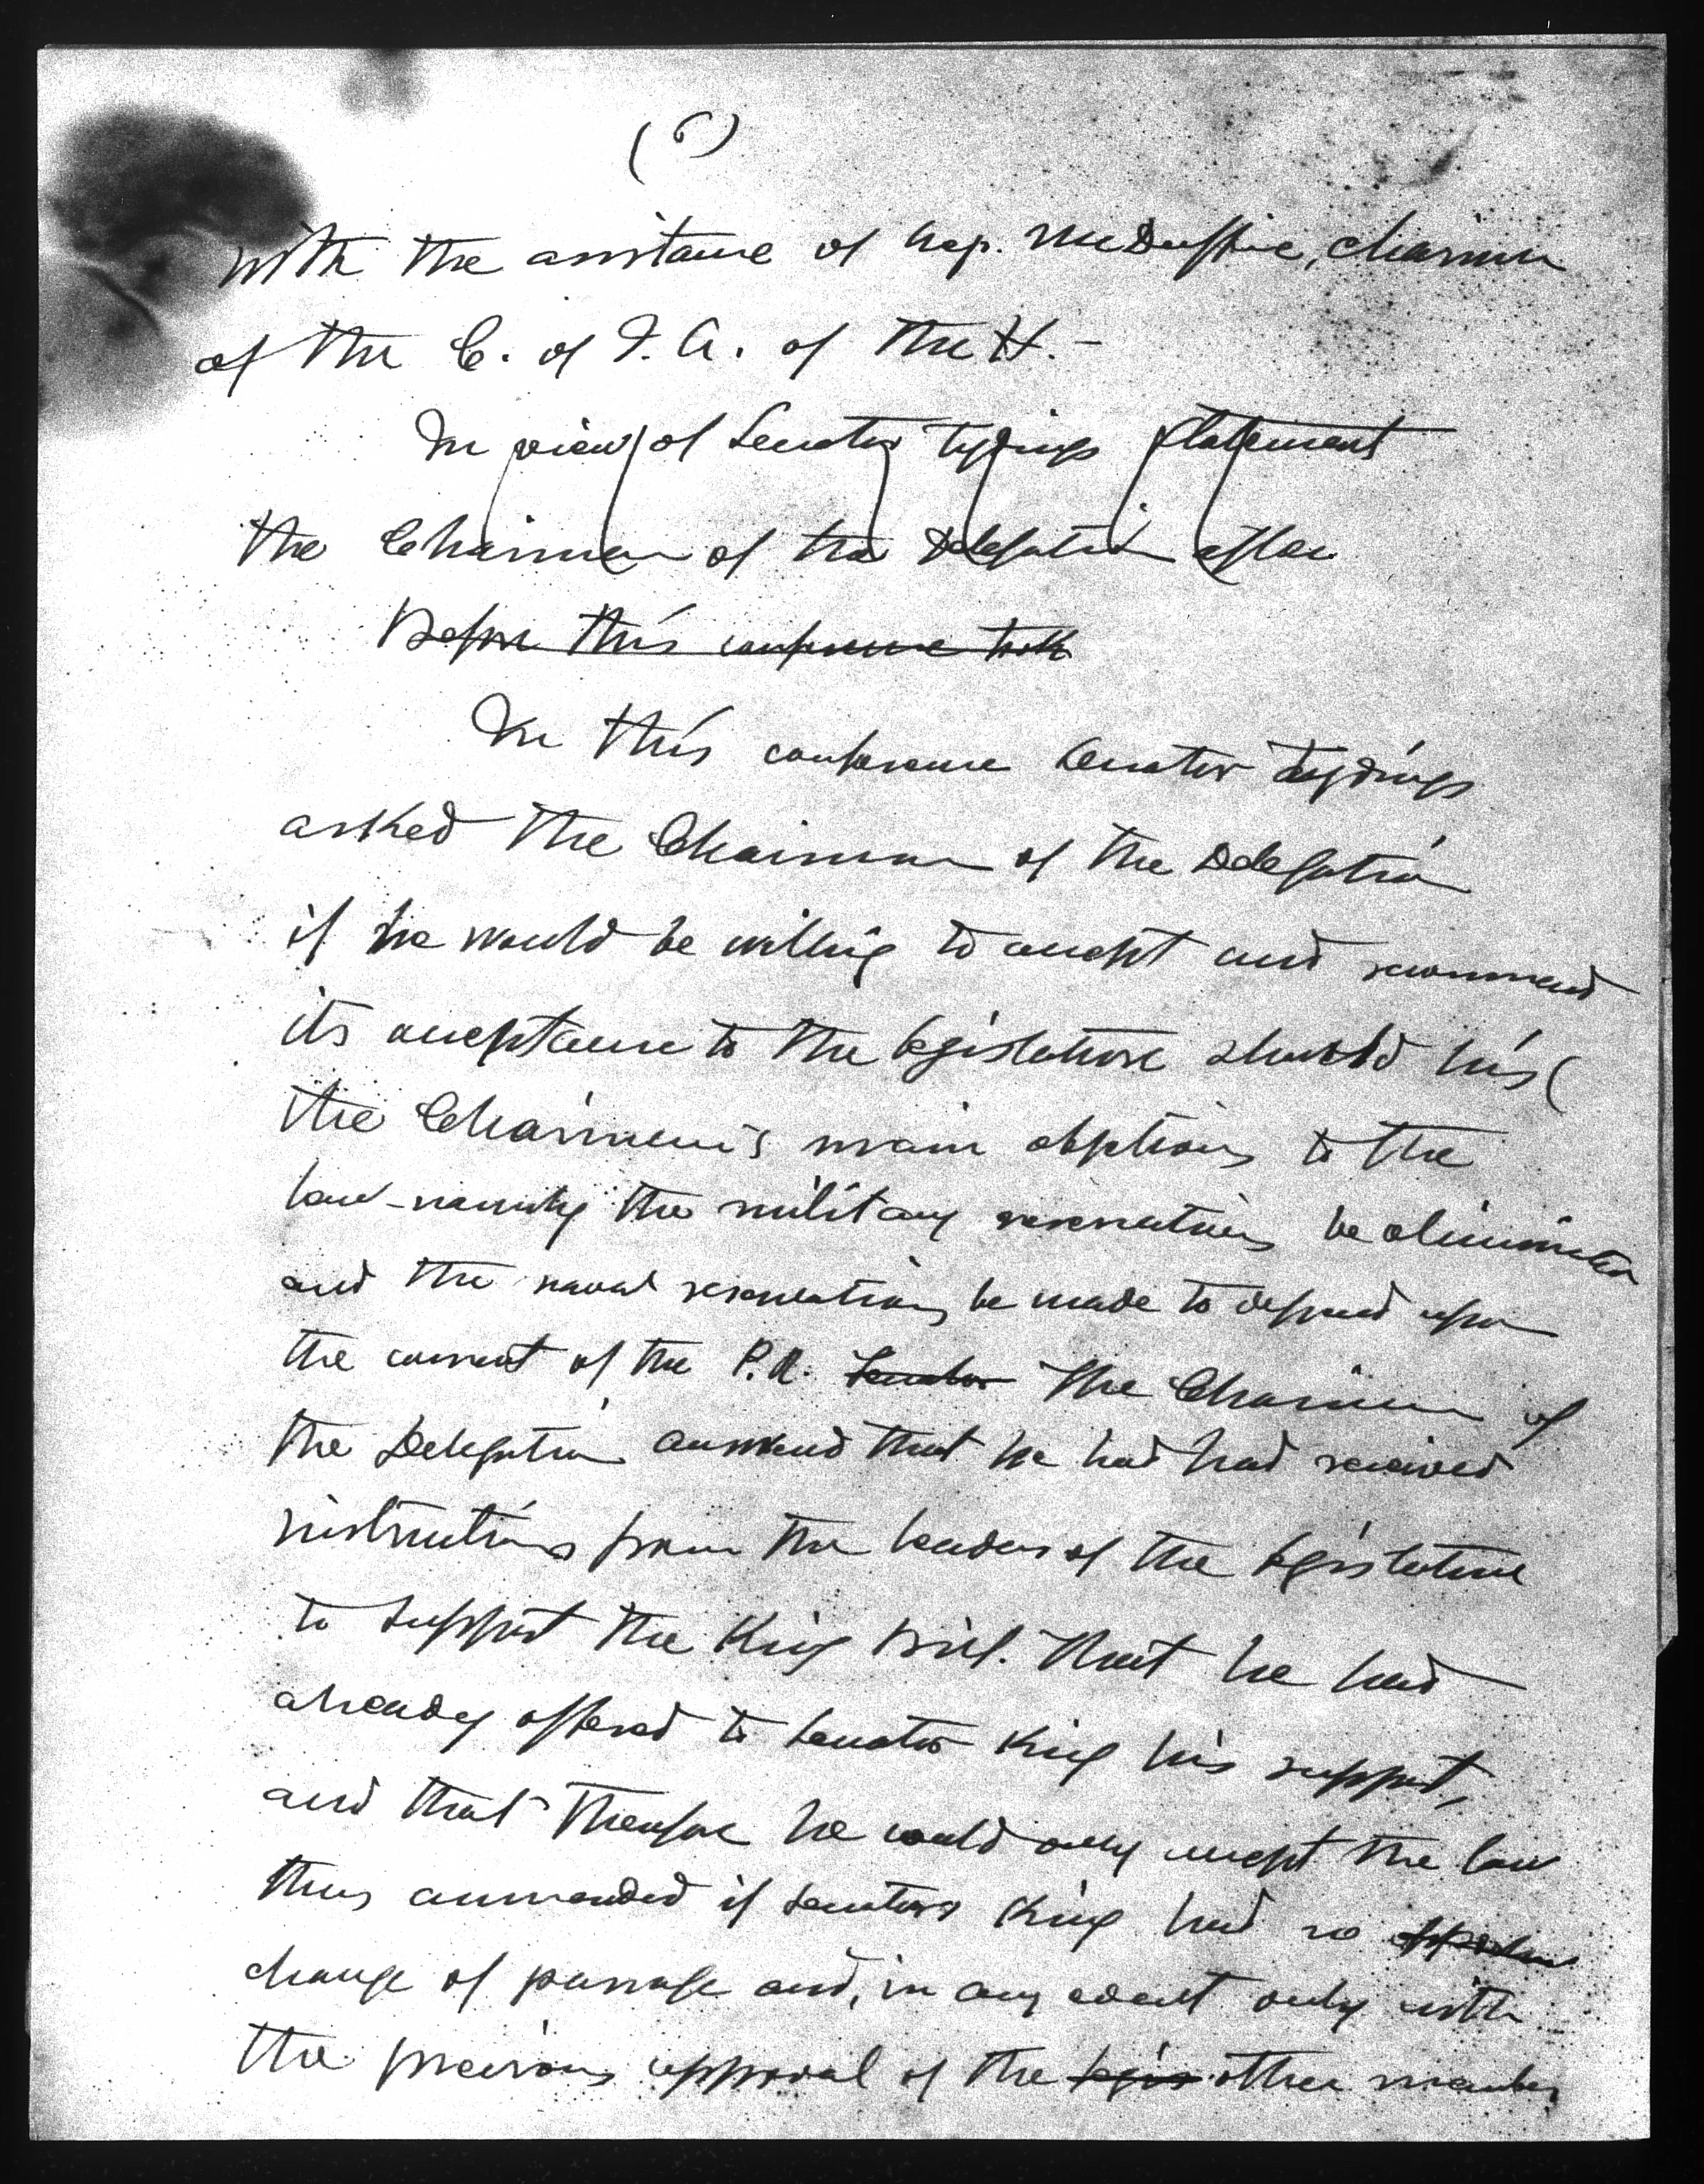 (6)
with the assistance of Rep. McDuffie, chairman
of the C. of I. A. of the H.-
In view of Senator Tydings statement
the Chairman of the Delegation after
Before this conference took
In this conference Senator Tydings
asked the Chairman of the Delegation
if he would be willing to accept and recommend
its acceptance to the legislature should his (
the Chairman's main objections to the
law-namely the military reservations be eliminated
and the naval reservations be made to depend upon
the consent of the P.I. Senator The Chairman of
the Delegation answered that he had had received
instructions from the leaders of the legislature
to support the King Bill. That he had
already offered to Senator King his support,
and that therefore he could only accept the law
thus ammended if Senator King had no
change of passage and, in any event only with
the previous approval of the legis other members